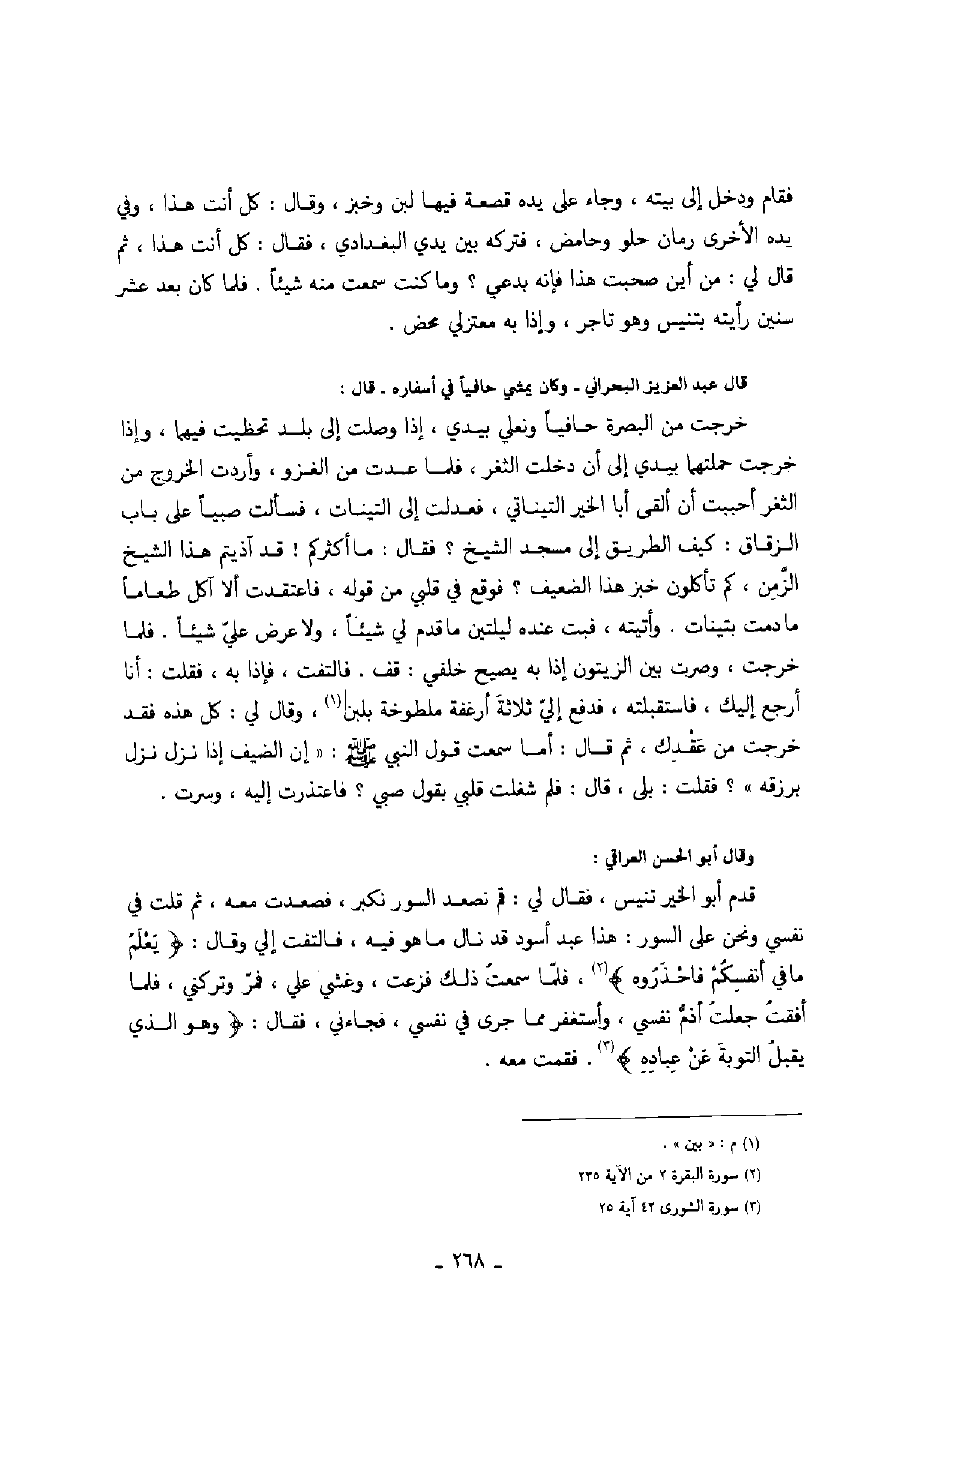 فقام ودخل إلى بيته ، وجاء على يده قصعة فيها لبن وخبز ، وقال : كل أنت هذا ، وفي
يده الأخرى رمان حلو وحامض ، فتركه بين يدي البغدادي ، فقال : كل أنت هذا ، ثم
قال لي : من أين صحبت هذا فإنه بدعي ؟ وما كنت سمعت منه شيئاً . فلما كان بعد عشر
سنين رأيته بتنيس وهو تاجر ، وإذا به معتزلي محض .
قال عبد العزيز البحراني - وكان يمشي حافياً في أسفاره - قال :
خرجت من البصرة حافياً ونعلي بيدي ، إذا وصلت إلى بلد تحظيت فيها ، وإذا
خرجت حملتها بيدي إلى أن دخلت الثغر ، فلما عدت من الغزو ، وأردت الخروج من
الثغر أحببت أن ألقى أبا الخير التيناتي ، فعدلت إلى التينات ، فسألت صبياً على باب
الزقاق : كيف الطريق إلى مسجد الشيخ ؟ فقال : ما أكثركم ! قد آذيتم هذا الشيخ
الزَّمِن ، كم تأكلون خبز هذا الضعيف ؟ فوقع في قلبي من قوله ، فاعتقدت ألا آكل طعاماً
ما دمت بتينات . وأتيته ، فبت عنده ليلتين ما قدم لي شيئاً ، ولا عرض عليّ شيئاً . فلما
خرجت ، وصرت بين الزيتون إذا به يصيح خلفي : قف . فالتفت ، فإذا به ، فقلت : أنا
أرجع إليك ، فاستقبلته ، فدفع إليّ ثلاثةَ أرغفة ملطوخة بلبن(١) ، وقال لي : كل هذه فقد
خرجت من عَقْدِك ، ثم قال : أما سمعت قول النبي ﷺ : « إن الضيف إذا نزل نزل
برزقه » ؟ فقلت : بلى ، قال : فلم شغلت قلبي بقول صبي ؟ فاعتذرت إليه ، وسرت .
وقال أبو الحسن العراقي :
قدم أبو الخير تنيس ، فقال لي : قم نصعد السور نكبر ، فصعدت معه ، ثم قلت في
نفسي ونحن على السور : هذا عبد أسود قد نال ما هو فيه ، فالتفت إلي وقال : ﴿ يَعْلَمُ
ما في أنفسِكُمْ فاحْذَرُوه ﴾(٢) ، فلمّا سمعتُ ذلك فزعت ، وغشي علي ، فمرّ وتركني ، فلما
أفقتُ جعلتُ أذمُّ نفسي ، وأستغفر مما جرى في نفسي ، فجاءني ، فقال : ﴿ وهو الذي
يقبلُ التوبةَ عَنْ عِبادِهِ ﴾(٣) . فقمت معه .
(١) م : « بين » .
(٢) سورة البقرة ٢ من الآية ٢٣٥
(٣) سورة الشورى ٤٢ آية ٢٥
- ٢٦٨ -